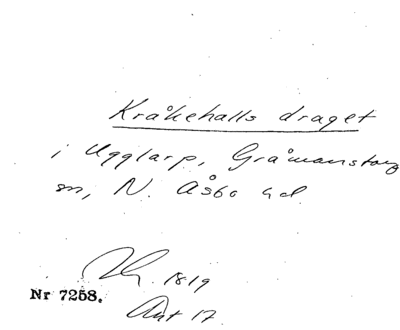 Kråkehalls draget
i Ugglarp, Gråmanstorps
sn, N. Åsbo hd
1819
Nr 7258.
Aut 17